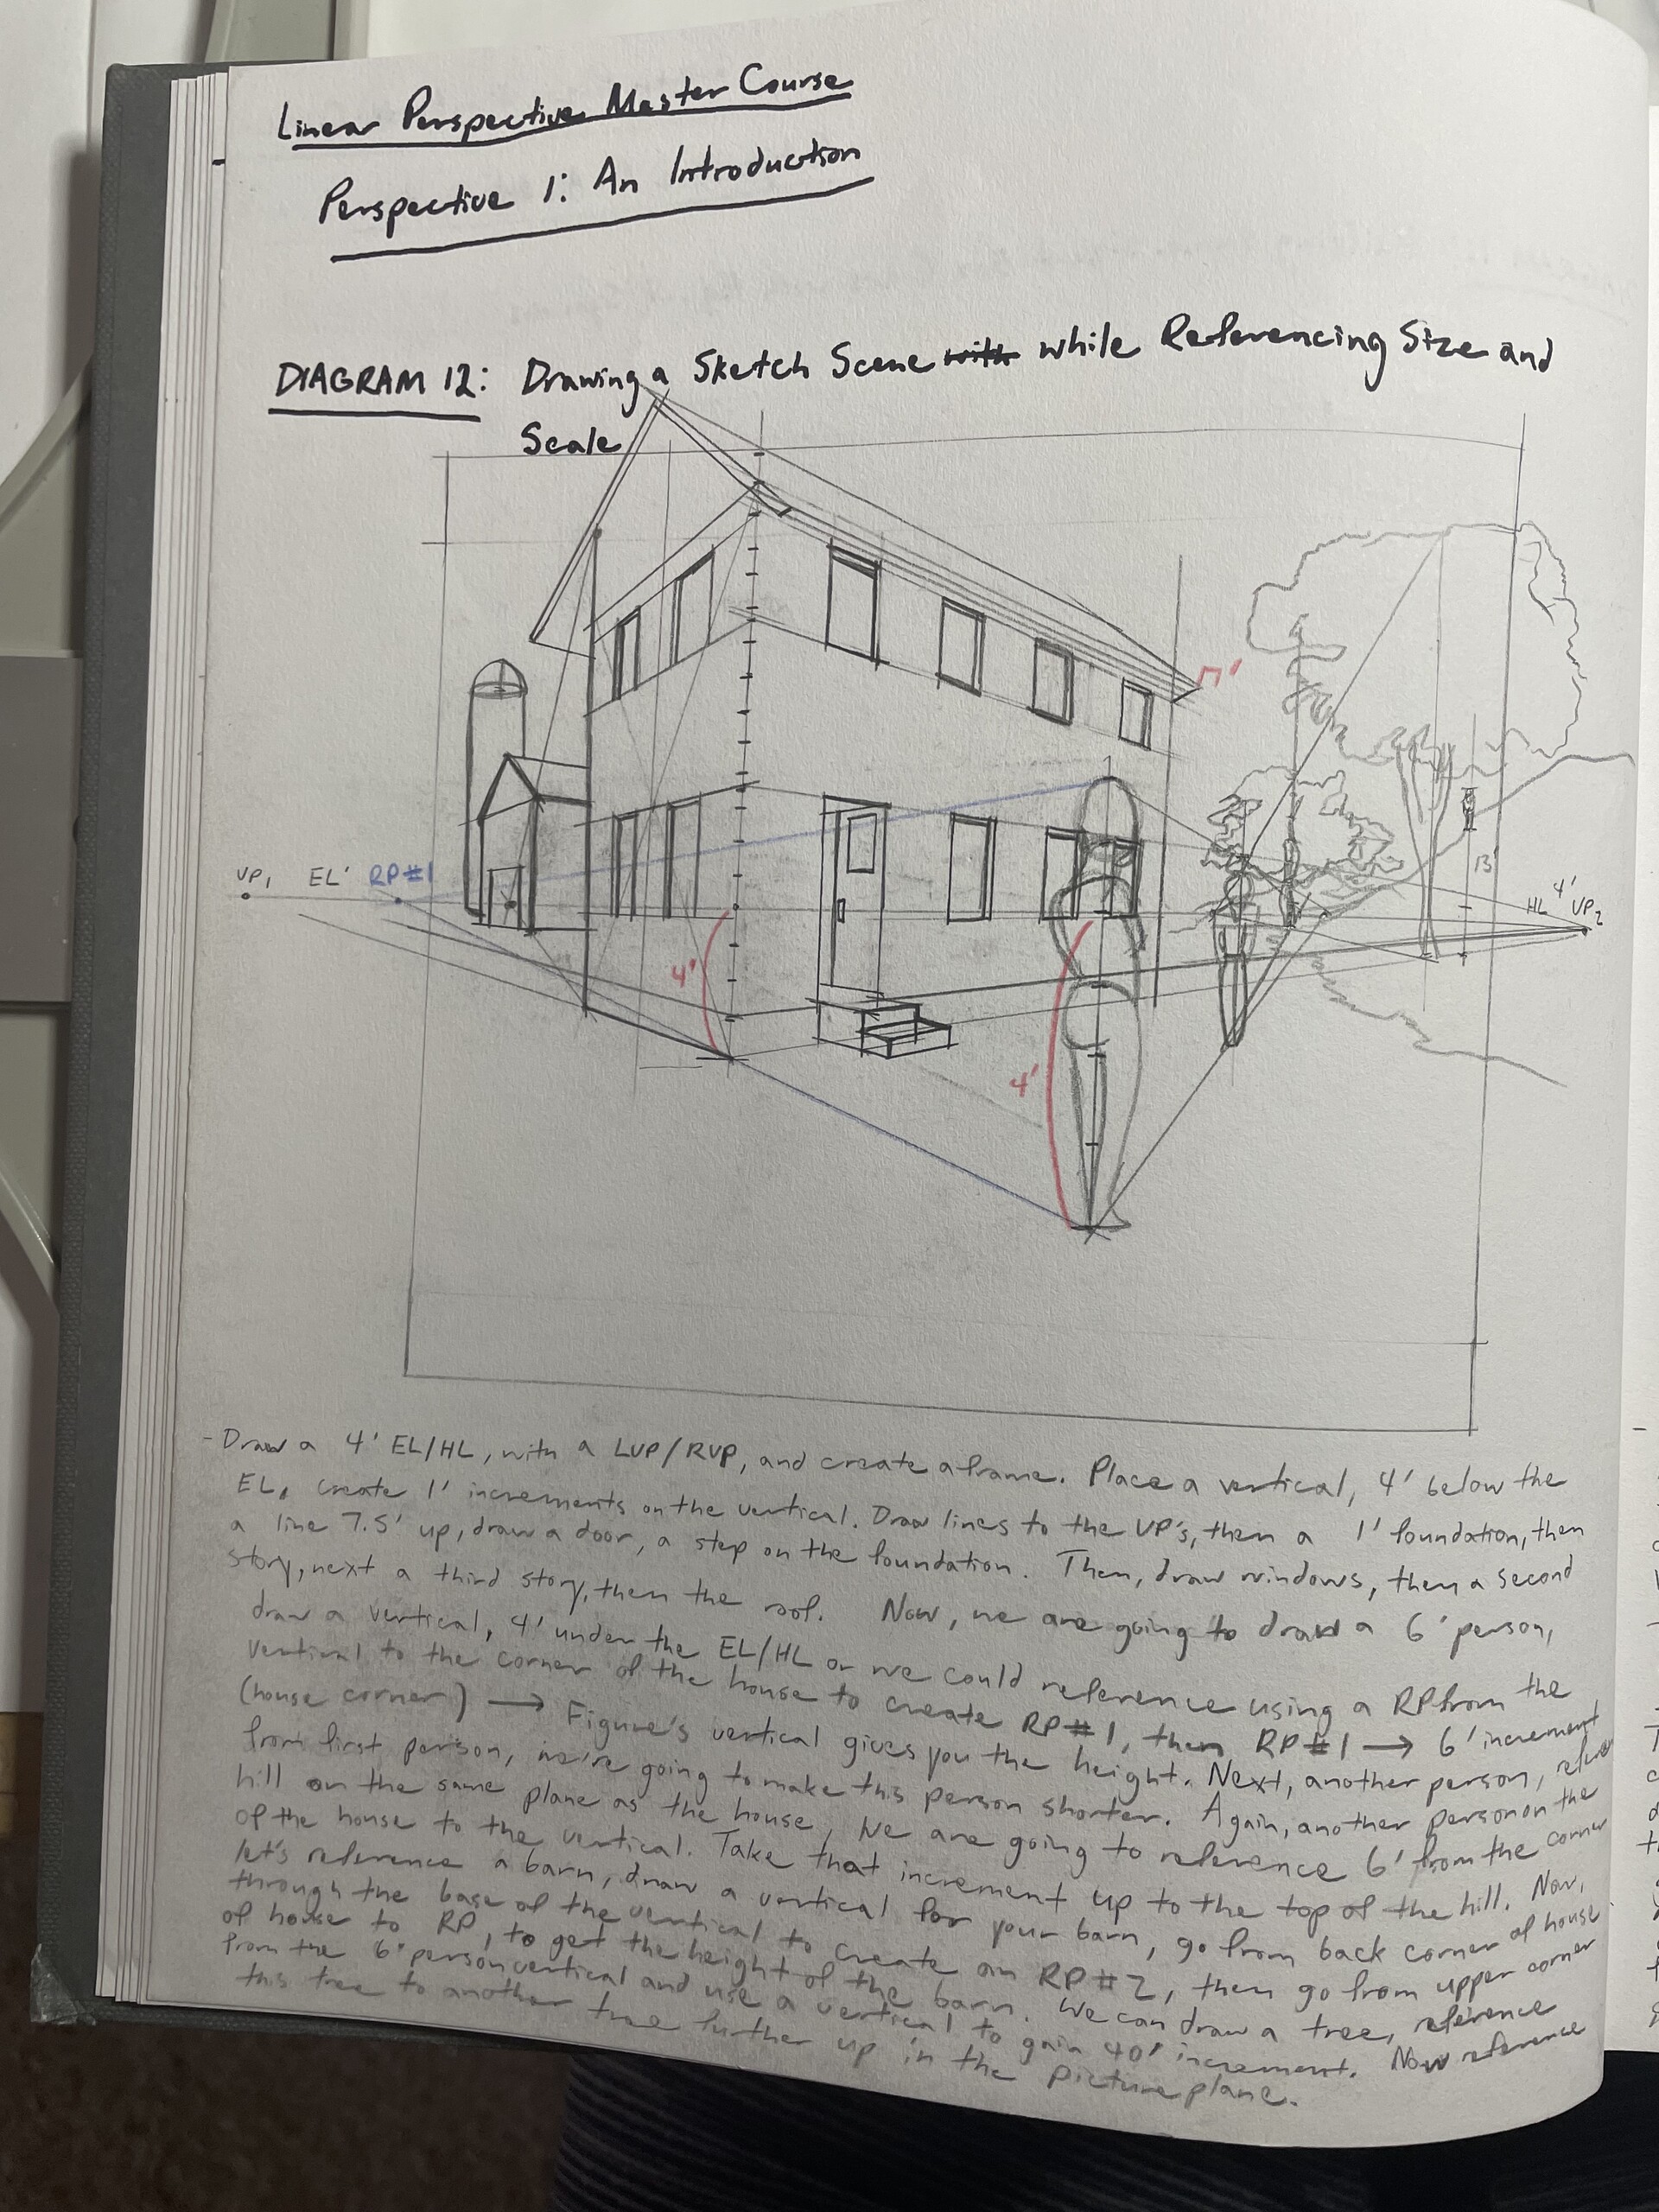 Linear Perspective Master Course
Perspective 1: An Introduction
DIAGRAM 12: Drawing a Sketch Scene with while Referencing Size and
Scale
17'
13'
VP1 EL' RP#1
HL 4' VP2
4'
4'
- Draw a 4' EL/HL, with a LVP/RVP, and create a frame. Place a vertical, 4' below the
EL, create 1' increments on the vertical. Draw lines to the VP's, then a 1' foundation, then
a line 7.5' up, draw a door, a step on the foundation. Then, draw windows, then a second
story, next a third story, then the roof. Now, we are going to draw a 6' person,
draw a vertical, 4' under the EL/HL or we could reference using a RP from the
vertical to the corner of the house to create RP#1, then RP#1 → 6' increment
(house corner) → Figure's vertical gives you the height. Next, another person, refer
from first person, we're going to make this person shorter. Again, another person on the
hill on the same plane as the house, we are going to reference 6' from the corner
of the house to the vertical. Take that increment up to the top of the hill. Now,
let's reference a barn, draw a vertical for your barn, go from back corner of house
through the base of the vertical to create an RP#2, then go from upper corner
of house to RP, to get the height of the barn. We can draw a tree, reference
from the 6' person vertical and use a vertical to gain 40' increment. Now reference
this tree to another tree further up in the picture plane.